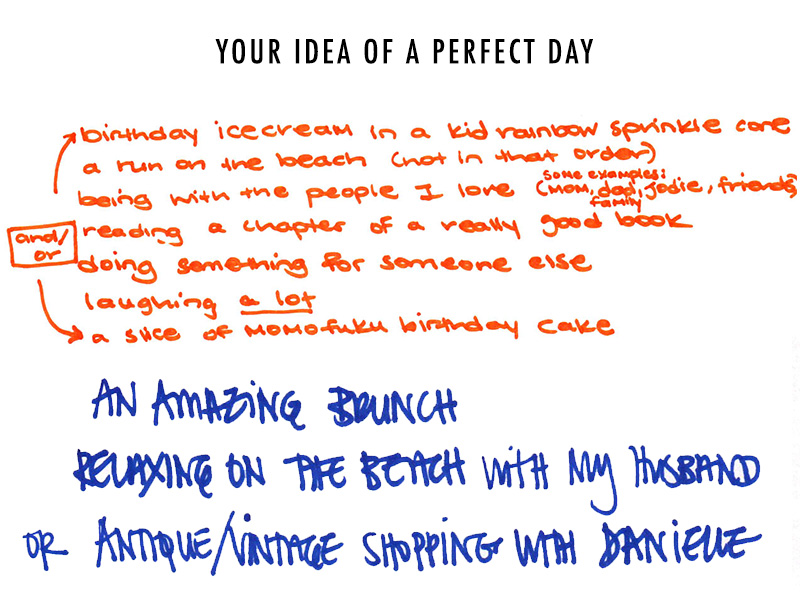 YOUR IDEA OF A PERFECT DAY
birthday icecream in a kid rainbow sprinkle cone
a run on the beach (not in that order)
some examples:
being with the people I love (mom, dad, jodie, friends)
family
reading a chapter of a really good book
and/
or
doing something for someone else
laughing a lot
a slice of momofuku birthday cake
AN AMAZING BRUNCH
RELAXING ON THE BEACH WITH MY HUSBAND
OR ANTIQUE/VINTAGE SHOPPING WITH DANIELLE